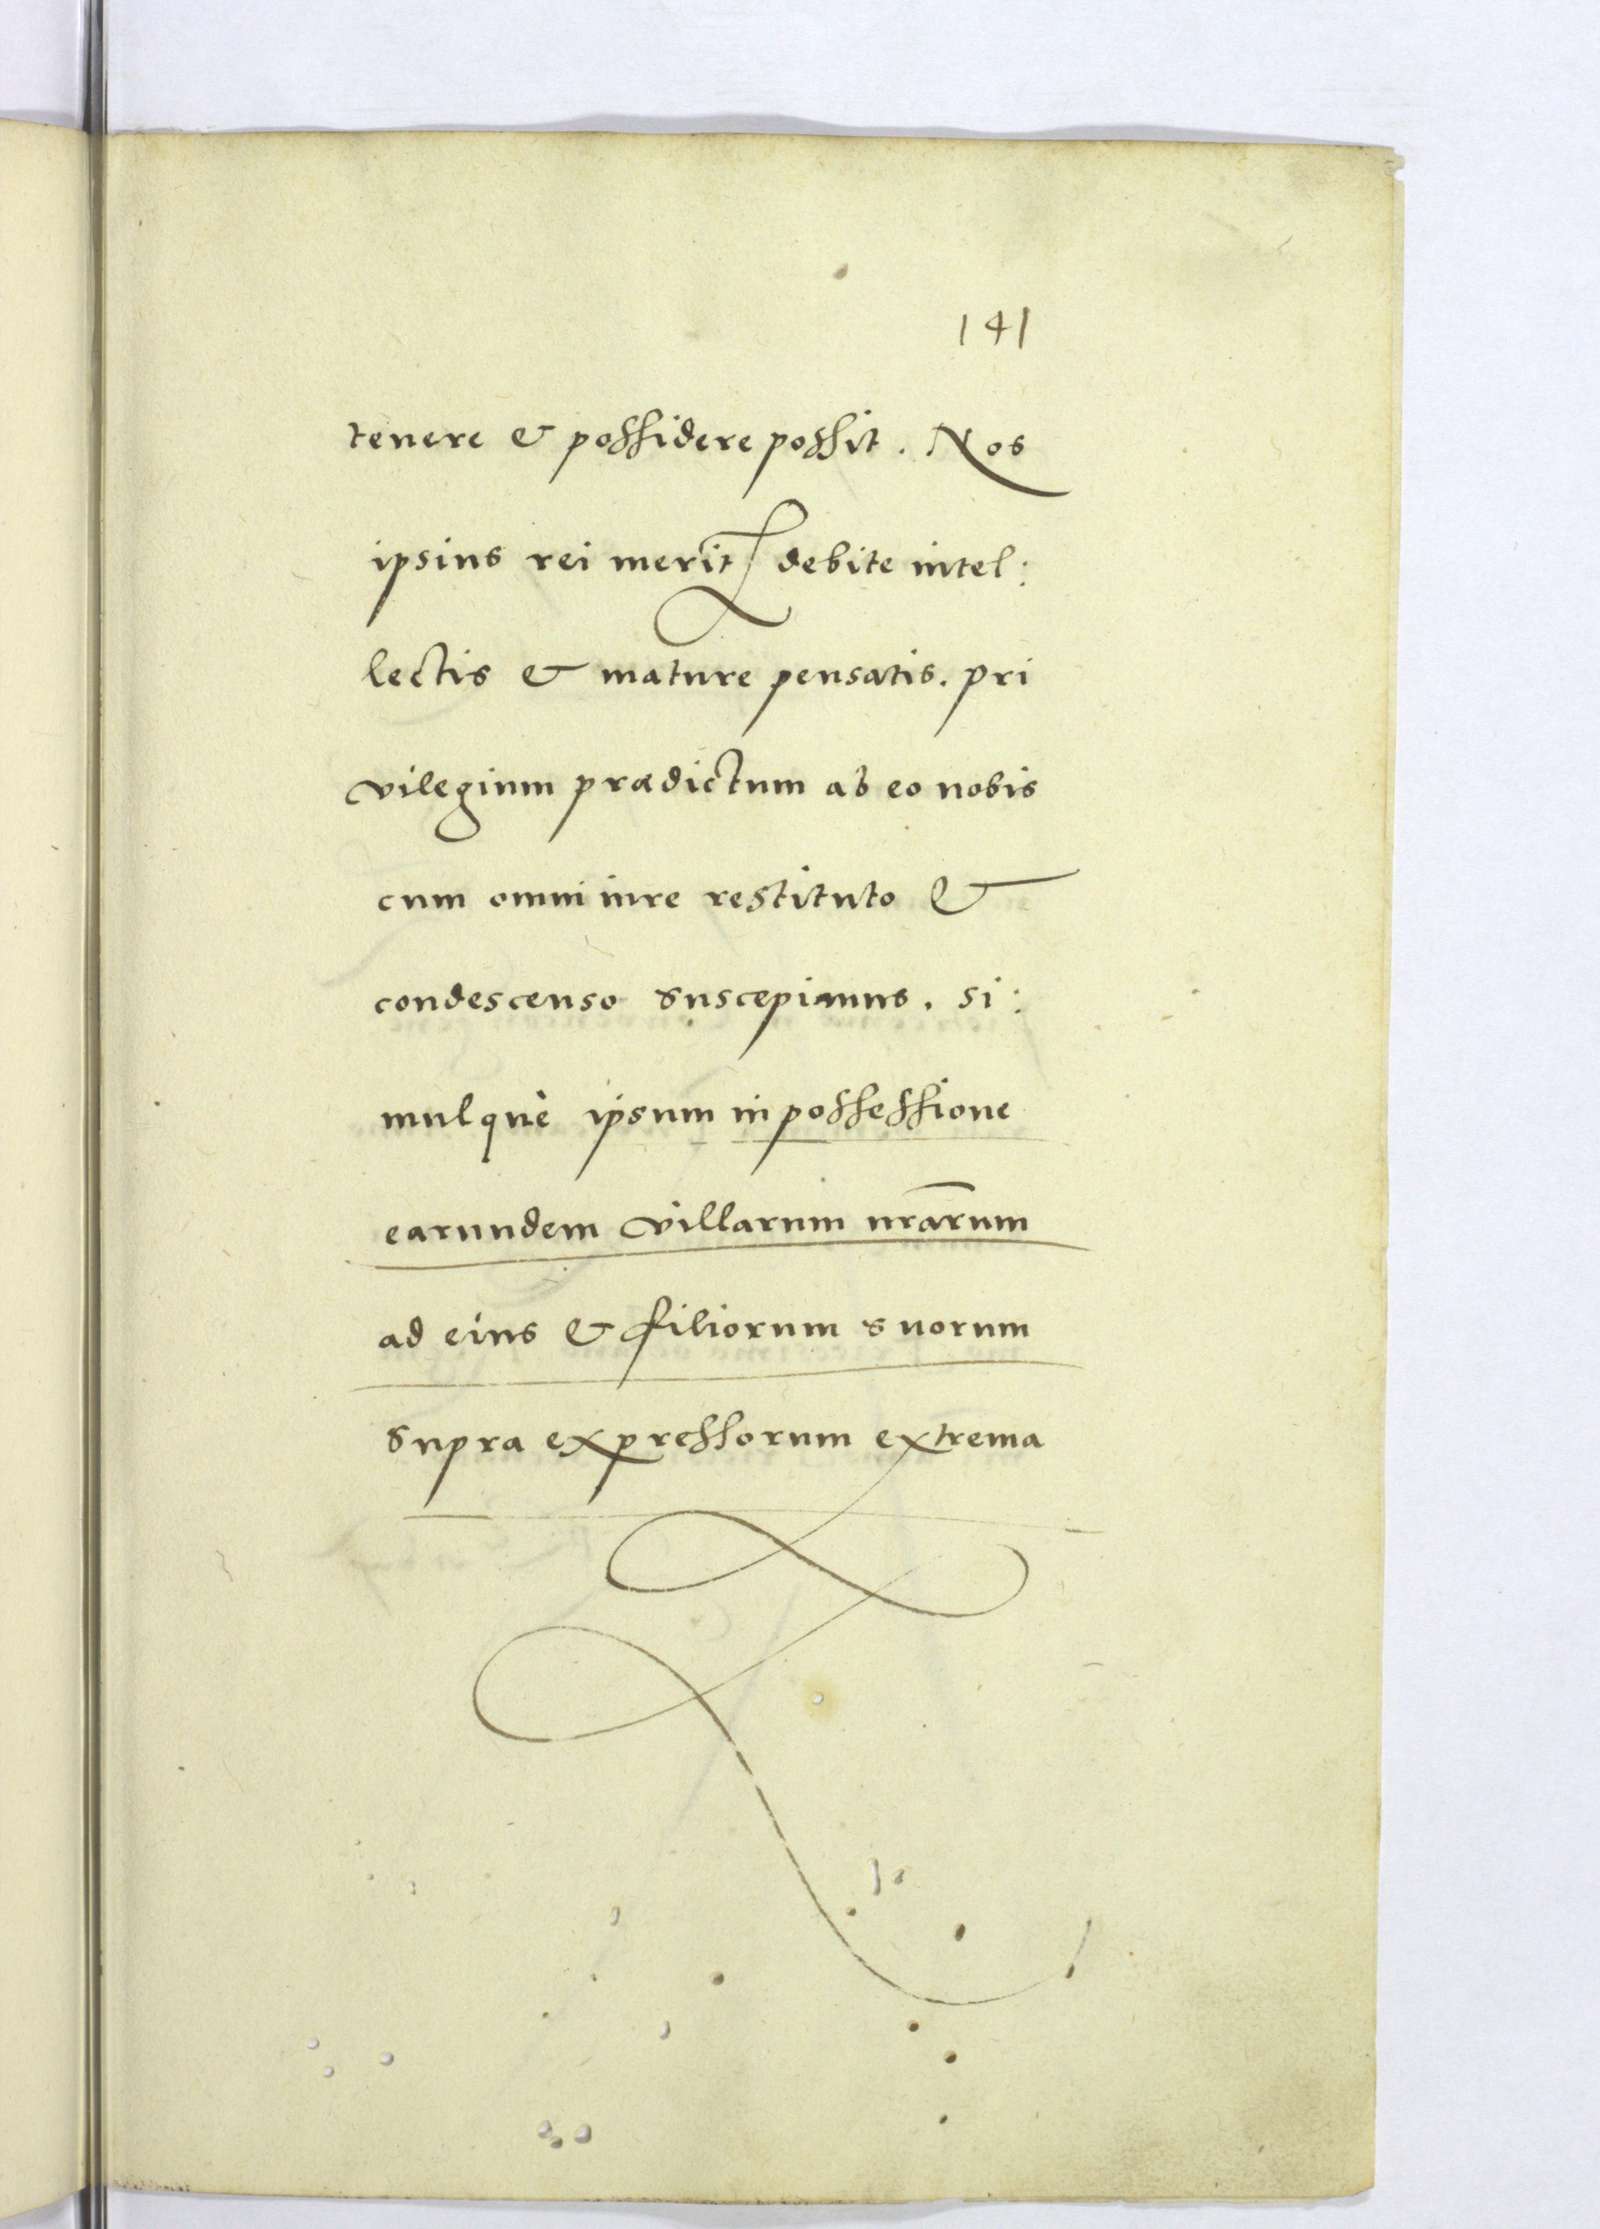 141
tenere & possidere possit. Nos
ipsius rei merit debite intel:
lectis & mature pensatis. pri
vilegium prædictum ab eo nobis
cum omni iure restituto &
condescenso suscepimus. si:
mulquè ipsum in possessione
earundem villarum nr̄arum
ad eius & filiorum suorum
supra expressorum extrema